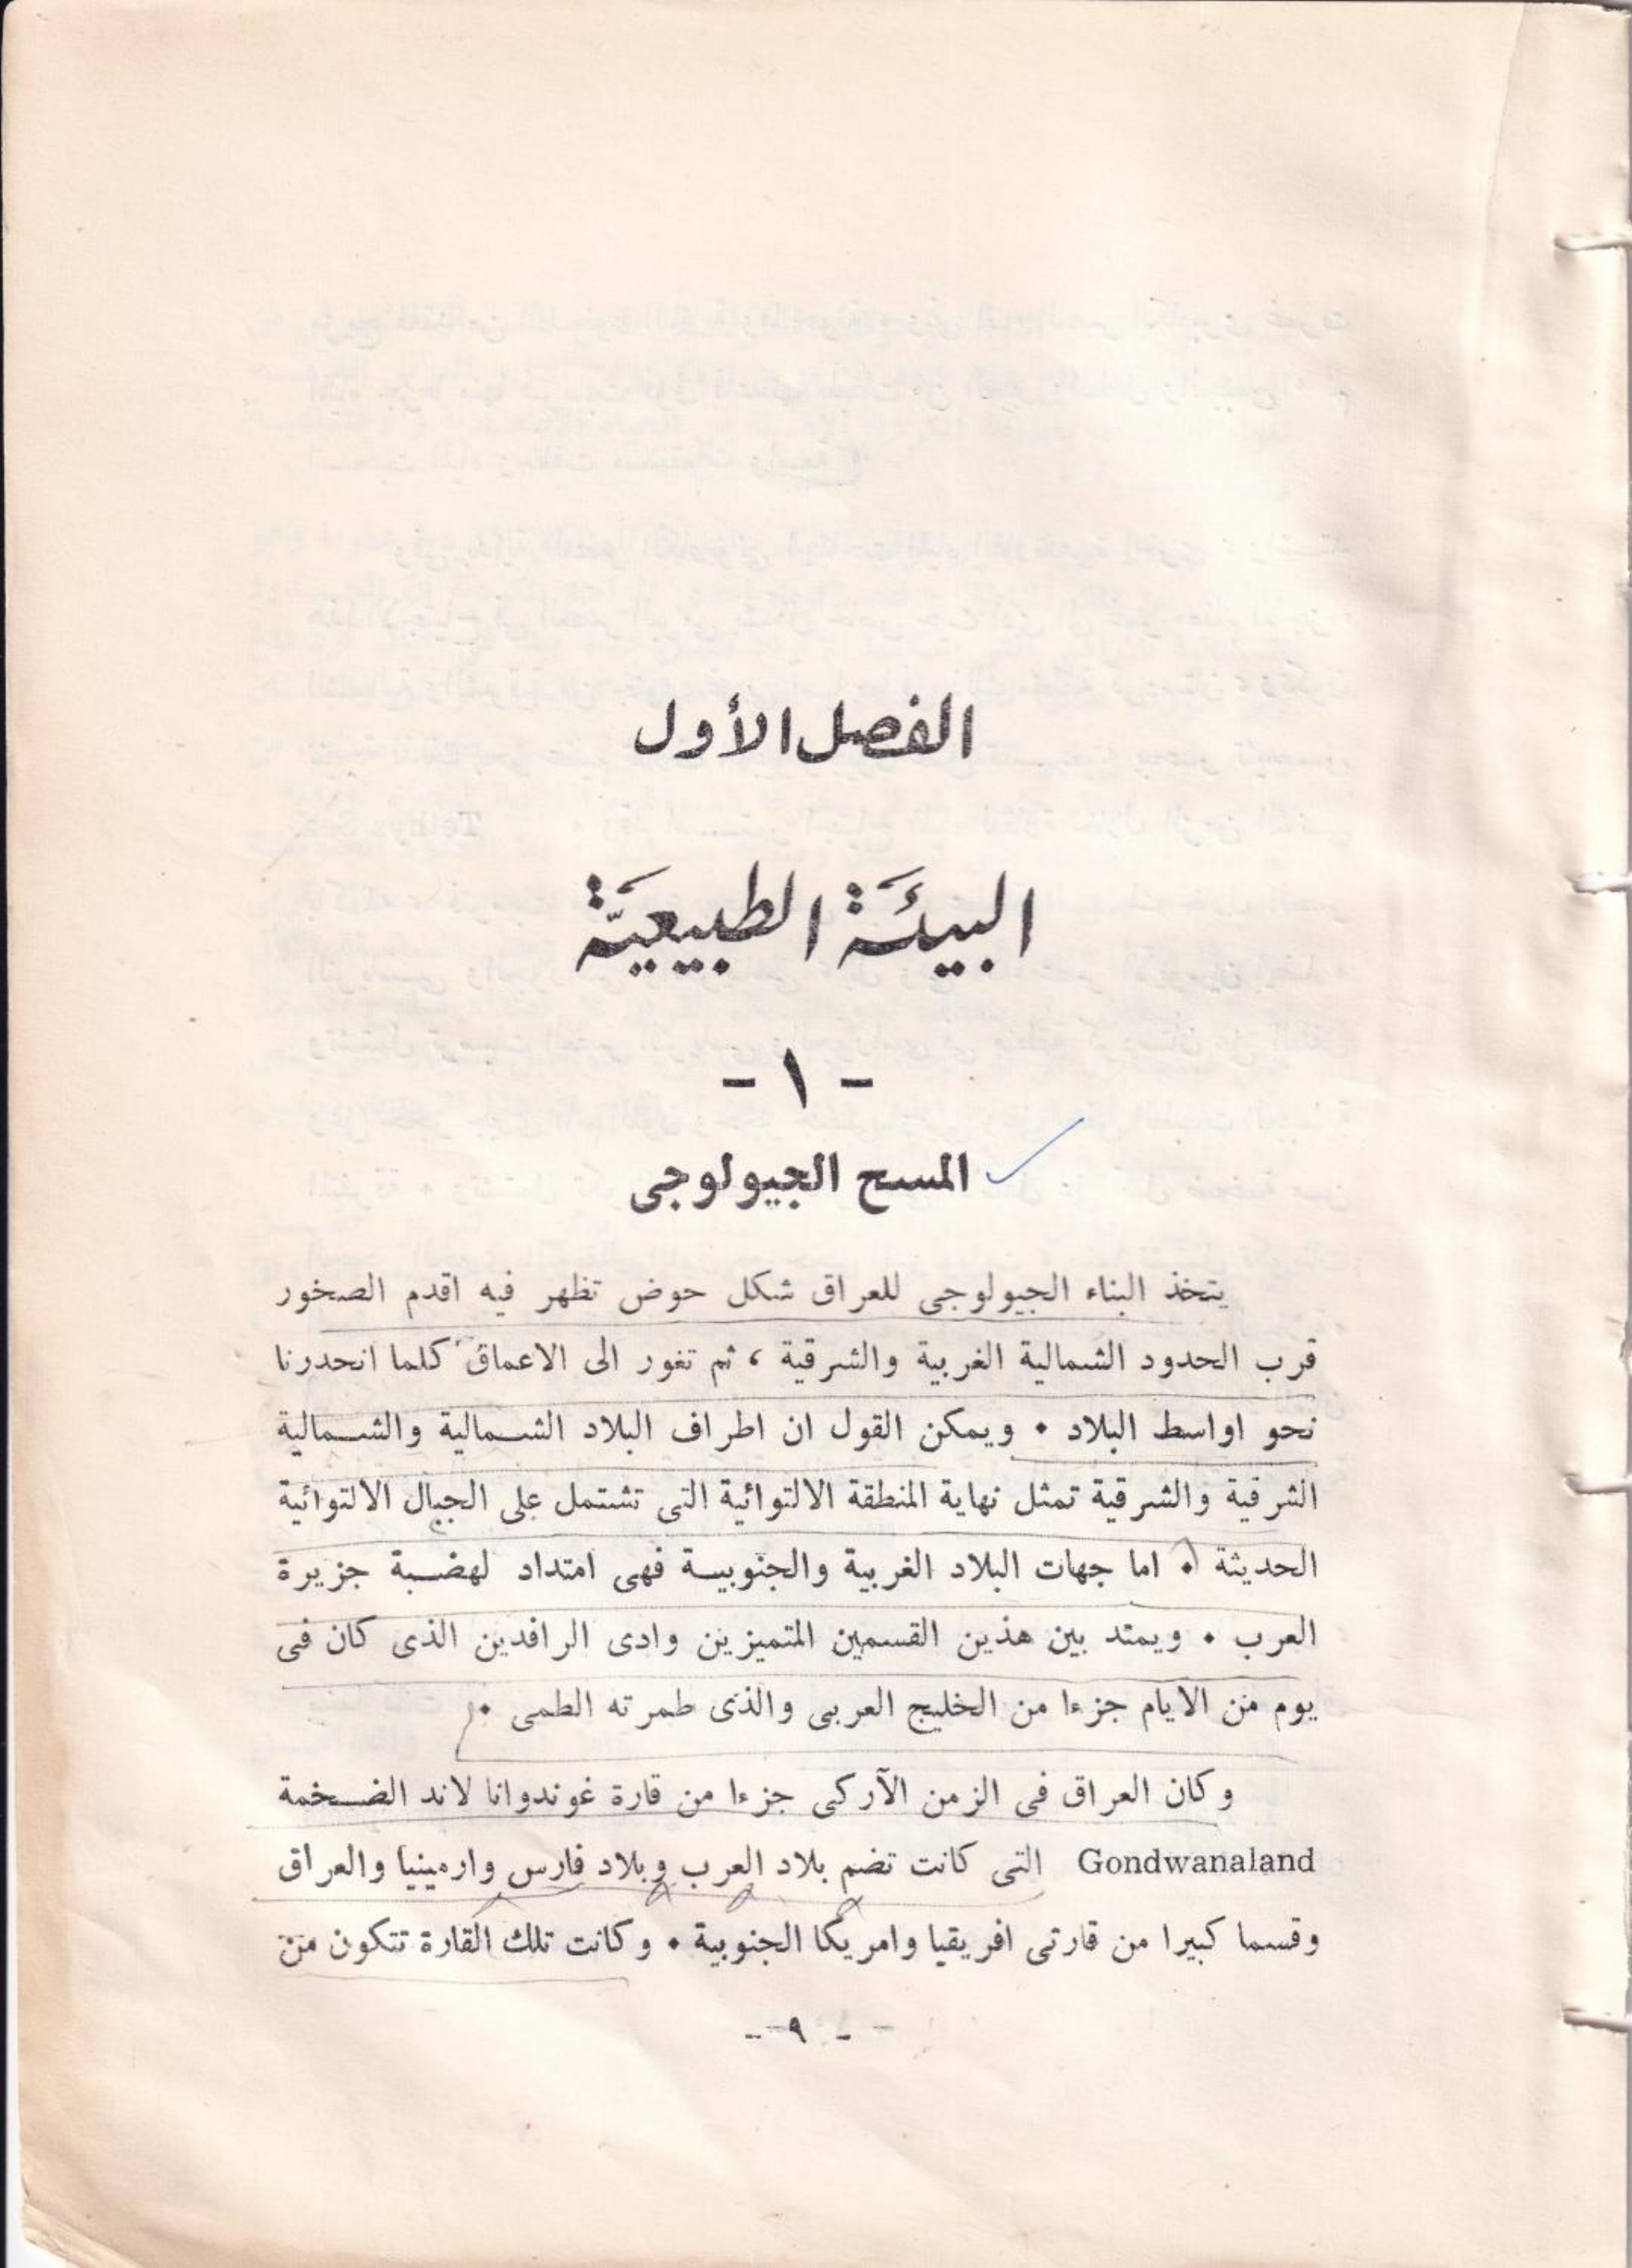 الفصل الأول
البيئَة الطبيعيَّة
- ١ -
المسح الجيولوجى
يتخذ البناء الجيولوجى للعراق شكل حوض تظهر فيه اقدم الصخور
قرب الحدود الشمالية الغربية والشرقية ، ثم تغور الى الاعماق كلما انحدرنا
نحو اواسط البلاد • ويمكن القول ان اطراف البلاد الشـــمالية والشـــمالية
الشرقية والشرقية تمثل نهاية المنطقة الالتوائية التى تشتمل على الجبال الالتوائية
الحديثة • اما جهات البلاد الغربية والجنوبيـــة فهى امتداد لهضـــبة جزيرة
العرب • ويمتد بين هذين القسمين المتميزين وادى الرافدين الذى كان فى
يوم من الايام جزءا من الخليج العربى والذى طمرته الطمى •
وكان العراق فى الزمن الآركى جزءا من قارة غوندوانا لاند الضـــخمة
Gondwanaland التى كانت تضم بلاد العرب وبلاد فارس وارمينيا والعراق
وقسما كبيرا من قارتى افريقيا وامريكا الجنوبية • وكانت تلك القارة تتكون من
- ٩ -